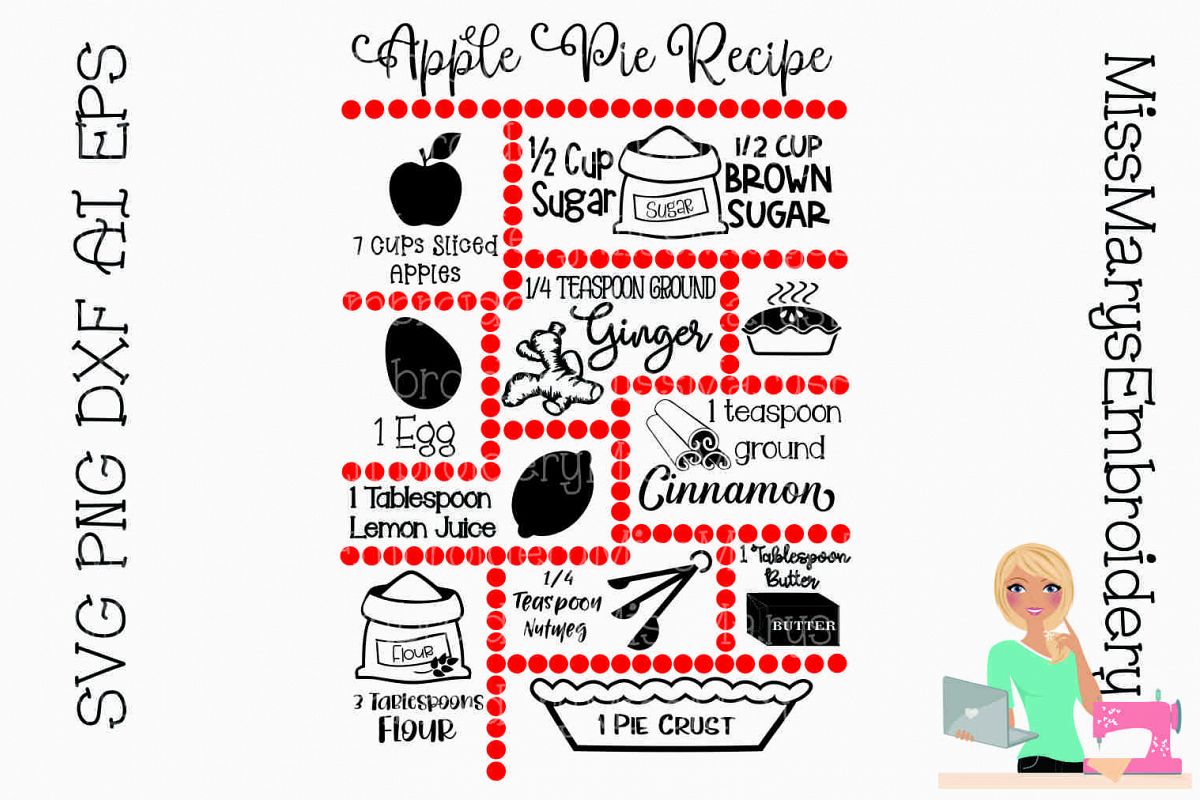 Apple Pie Recipe
SVG PNG DXF AI EPS
MissMarysEmbroidery
7 Cups Sliced
Apples
1/2 Cup
Sugar
Sugar
1/2 CUP
BROWN
SUGAR
1/4 TEASPOON GROUND
Ginger
1 Egg
1 teaspoon
ground
Cinnamon
1 Tablespoon
Lemon Juice
Flour
3 Tablespoons
Flour
1/4
Teaspoon
Nutmeg
1 Tablespoon
Butter
BUTTER
1 Pie Crust